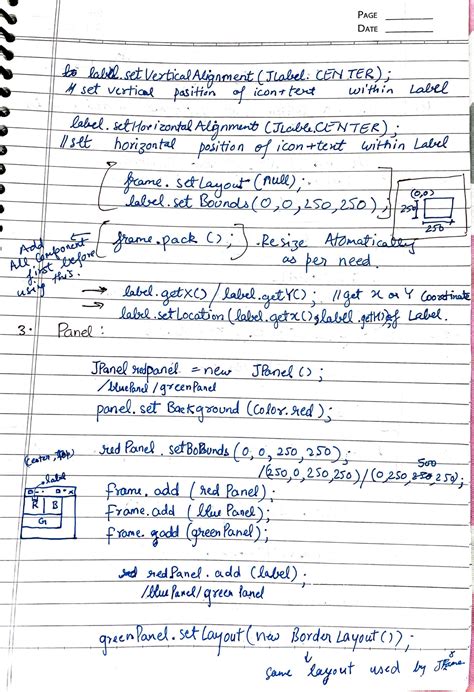 PAGE
DATE
label.setVerticalAlignment (JLabel.CENTER);
// set vertical position of icon+text within Label
label.setHorizontalAlignment (JLabel.CENTER);
// set horizontal position of icon+text within Label
frame.setLayout (null);
label.set Bounds (0,0,250,250);
(0,0)
250
250
frame.pack ();
Resize Atomatically
as per need.
Add
All Component
first before
using this.
→ label.getX() / label.getY(); // get X or Y Coordinate
→ label.setLocation (label.getX(), label.getY()); of Label.
3. Panel :
JPanel redpanel = new JPanel ();
/bluePanel / greenPanel
panel.set Background (Color.red);
redPanel.setBounds (0, 0, 250, 250);
/(250,0,250,250) / (0,250, 500 250);
(center, top)
label
R B
G
frame.add (redPanel);
frame.add (bluePanel);
frame.add (greenPanel);
redPanel.add (label);
/bluePanel / greenPanel
greenPanel.setLayout (new BorderLayout());
same layout used by JFrame